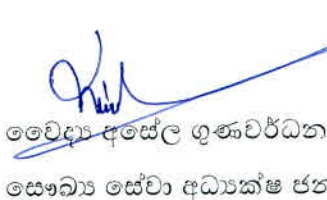 වෛද්‍ය අසේල ගුණවර්ධන
සෞඛ්‍ය සේවා අධ්‍යක්ෂ ජන